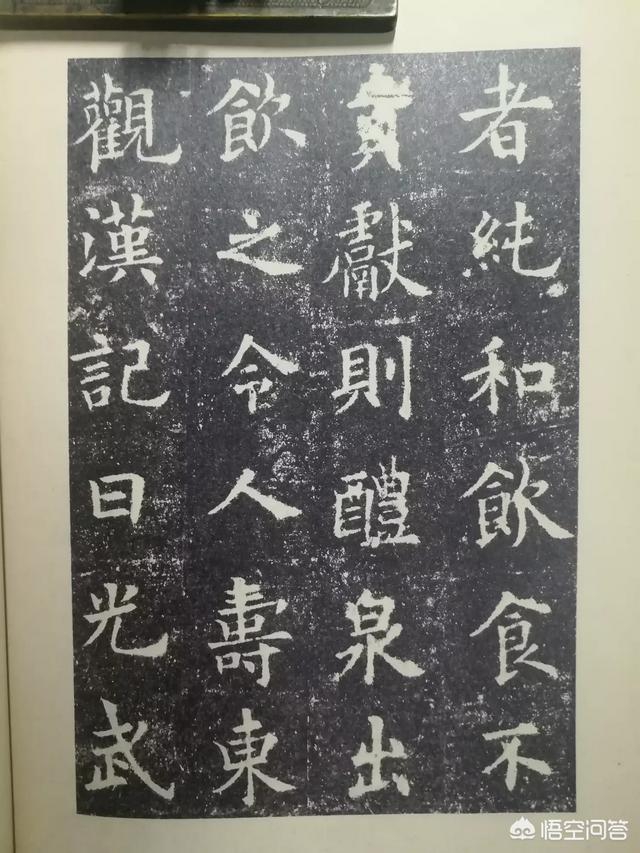 者純和飲食不
貢獻則醴泉出
飲之令人壽東
觀漢記曰光武
悟空问答